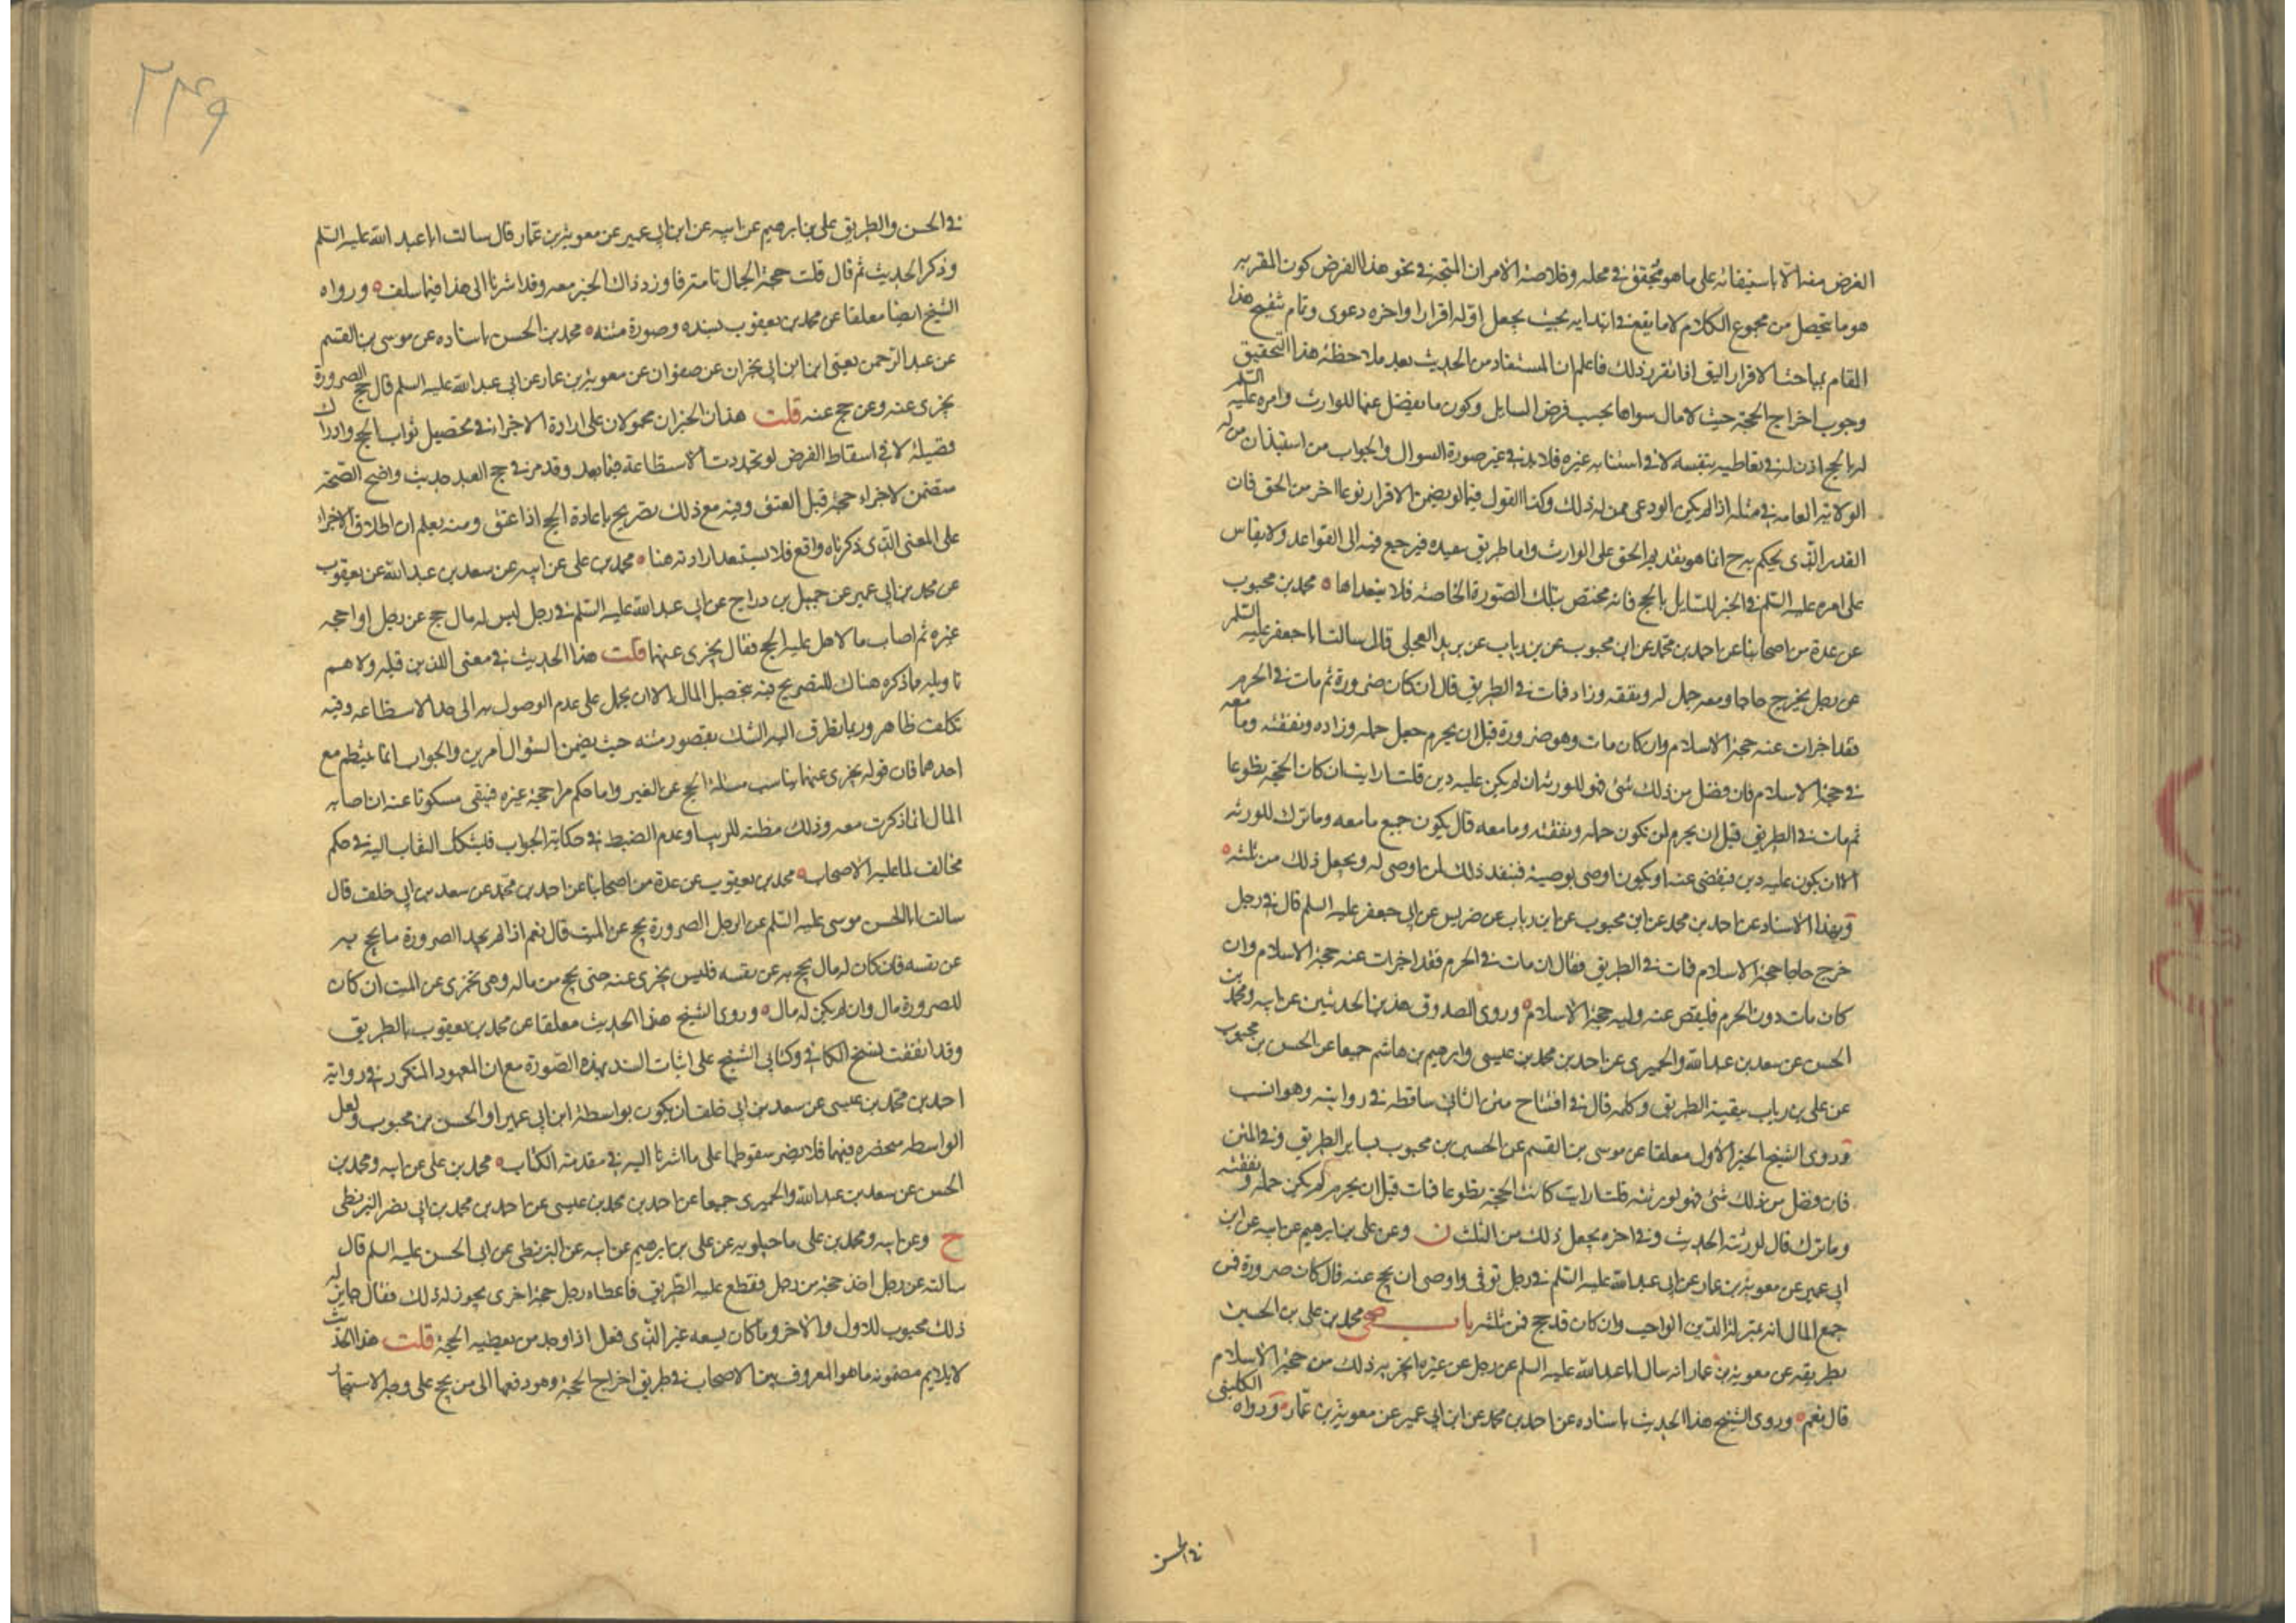 الغرض منه الا باستيفائه على ما هو محقق في محله وخلاصة الامر ان المتجه في نحو هذا الفرض كون المقر به
هو ما يتحصل من مجموع الكلام لا ما يقع في ابتدايه بحيث يجعل اوله اقرارا واخره دعوى وتمام تنقيح هذا
المقام بمباحث الاقرار اليق اذا تقرر ذلك فاعلم ان المستفاد من الحديث بعد ملاحظة هذا التحقيق
وجوب اخراج الحجة حيث لا مال سواها بحسب فرض السايل وكون ما يفضل عنها للوارث وامره عليه السلم
له بالحج اذن له في تعاطيه بنفسه لا في استنابه غيره فلا بد في غير صورة السوال والجواب من استيذان من له
الولاية العامه في مثله اذا لم يكن الودعى ممن له ذلك وكذا القول فيما لو يضمن الاقرار نوعا اخر من الحق فان
القدر الذى يحكم به ح انما هو تقديم الحق على الوارث واما طريق سعيده فيرجع فيه الى القواعد ولا يقاس
على امره عليه السلم في الخبر للسايل بالحج فانه مختص بتلك الصورة الخاصة فلا يتعداها ٥ محمد بن محبوب
عن عدة من اصحابنا عن احمد بن محمد عن ابن محبوب عن بن رياب عن بريد العجلى قال سالت ابا جعفر عليه السلم
عن رجل يخرج حاجا ومعه جمل له ونفقه وزاد فمات في الطريق قال ان كان صرورة ثم مات في الحرم
فقد اجزات عنه حجة الاسلام وان كان مات وهو صرورة قبل ان يحرم جعل جمله وزاده ونفقته وما معه
في حجة الاسلام فان فضل من ذلك شئ فهو للورثه ان لم يكن عليه دين قلت ارايت ان كان الحجة تطوعا
ثم مات في الطريق قبل ان يحرم لمن تكون جمله ونفقته وما معه قال يكون جميع ما معه وما ترك للورثه
الا ان يكون عليه دين فيقضى عنه او يكون اوصى بوصية فينفذ ذلك لمن اوصى له ويجعل ذلك من ثلثه ٥
وبهذا الاسناد عن احمد بن محمد عن ابن محبوب عن ابن رياب عن ضريس عن ابى جعفر عليه السلم قال في رجل
خرج حاجا حجة الاسلام فمات في الطريق فقال ان مات في الحرم فقد اجزات عنه حجة الاسلام وان
كان مات دون الحرم فليقض عنه وليه حجة الاسلام ٥ وروى الصدوق هذين الحديثين عن ابيه ومحمد بن
الحسن عن سعد بن عبد الله والحميرى عن احمد بن محمد بن عيسى وابرهيم بن هاشم جميعا عن الحسن بن محبوب
عن على بن رياب ببقية الطريق وكلمه قال في افتتاح متن الثاني ساقطه في روايته وهو انسب
وروى الشيخ الخبر الاول معلقا عن موسى بن القسم عن الحسن بن محبوب بساير الطريق وفي المتن
فان فضل من ذلك شئ فهو لورثته قلت ارايت كانت الحجة تطوعا فمات قبل ان يحرم لم يكن جمله ونفقته
وما ترك قال لورثته الحديث وفي اخره يجعل ذلك من الثلث ن وعن على بن ابرهيم عن ابيه عن ابن
ابى عمير عن معوية بن عمار عن ابى عبد الله عليه السلم في رجل توفى واوصى ان يحج عنه قال كان صرورة فمن
جميع المال انه بمنزلة الدين الواجب وان كان قد حج فمن ثلثه باب صحى محمد بن على بن الحسين
بطريقه عن معوية بن عمار انه سال ابا عبد الله عليه السلم عن رجل عن غيره ايجزيه ذلك من حجة الاسلام
قال نعم ٥ وروى الشيخ هذا الحديث باسناده عن احمد بن محمد عن ابن ابى عمير عن معوية بن عمار ٥ ورواه الكلينى
في الحسن
٢٣٤٩
في الحسن والطريق على بن ابرهيم عن ابيه عن ابن ابى عمير عن معوية بن عمار قال سالت ابا عبد الله عليه السلم
وذكر الحديث ثم قال قلت حجة الجمال تامة فاوزد ذاك الخبر معه وقد اشرنا الى هذا فيما سلف ٥ ورواه
الشيخ ايضا معلقا عن محمد بن يعقوب بسنده وصورة متنه ٥ محمد بن الحسن باسناده عن موسى بن القسم
عن عبد الرحمن يعنى ابن ابى نجران عن صفوان عن معوية بن عمار عن ابى عبد الله عليه السلم قال حج الصرورة
يجزى عنه وعن حج عنه قلت هذان الخبران محمولان على ارادة الاجزاء في تحصيل ثواب الحج وادراك
فضيلة لا في اسقاط الفرض لو تجددت الاستطاعة فيما بعد وقد مر في حج العبد حديث واضح الصحة
متضمن لاجزاء حجة قبل العتق وفيه مع ذلك تصريح باعادة الحج اذا عتق ومنه يعلم ان اطلاق الاجزاء
على المعنى الذى ذكرناه واقع فلا يستبعد ارادته هنا ٥ محمد بن على عن ابيه عن سعد بن عبد الله عن يعقوب
عن محمد بن ابى عمير عن جميل بن دراج عن ابى عبد الله عليه السلم في رجل ليس له مال حج عن رجل او احجه
غيره ثم اصاب مالا هل عليه الحج فقال يجزى عنهما قلت هذا الحديث في معنى الذين قبله ولا هم
تاويله ما ذكره هناك للتصريح فيه بتحصيل المال الا ان يحمل على عدم الوصول به الى حد الاستطاعه وفيه
تكلف ظاهر وربما تطرق اليه الشك بقصور متنه حيث يضمن السؤال امرين والجواب انما ينتظم مع
احدهما فان قوله يجزى عنهما يناسب مسئلة الحج عن الغير واما حكم من احجه غيره فيبقى مسكوتا عنه ان اصابه
المال انما ذكرت معه وذلك مظنة للريب وعدم الضبط في حكاية الجواب فليشكل التفات اليه في حكم
مخالف لما عليه الاصحاب ٥ محمد بن يعقوب عن عدة من اصحابنا عن احمد بن محمد عن سعد بن ابى خلف قال
سالت ابا الحسن موسى عليه السلم عن الرجل الصرورة يحج عن الميت قال نعم اذا لم يجد الصرورة ما يحج به
عن نفسه فان كان له مال يحج به عن نفسه فليس يجزى عنه حتى يحج من ماله وهى تجزى عن الميت ان كان
للصرورة مال وان لم يكن له مال ٥ وروى الشيخ هذا الحديث معلقا عن محمد بن يعقوب بالطريق
وقد اتفقت نسخ الكافي وكتابى الشيخ على اثبات السند بهذه الصورة مع ان المعهود المتكرر في رواية
احمد بن محمد بن عيسى عن سعد بن ابى خلف ان يكون بواسطة ابن ابى عمير او الحسن بن محبوب ولعل
الواسطه منحصره فيهما فلا يضر سقوطها على ما اشرنا اليه في مقدمة الكتاب ٥ محمد بن على عن ابيه ومحمد بن
الحسن عن سعد بن عبد الله والحميرى جميعا عن احمد بن محمد بن عيسى عن احمد بن محمد بن ابى نصر البزنطى
ح وعن ابيه ومحمد بن على ماجيلويه عن على بن ابرهيم عن ابيه عن البزنطى عن ابى الحسن عليه السلم قال
سالته عن رجل اخذ حجة من رجل فقطع عليه الطريق فاعطاه رجل حجة اخرى يجوز له ذلك فقال جايز له
ذلك محبوب للاول والاخر وما كان يسعه غير الذى فعل اذا وجد من يعطيه الحجة قلت هذا الحديث
لا يلايم مضمونه ما هو المعروف بين الاصحاب في طريق اخراج الحجة وهو دفعها الى من يحج على وجه الاستيجا